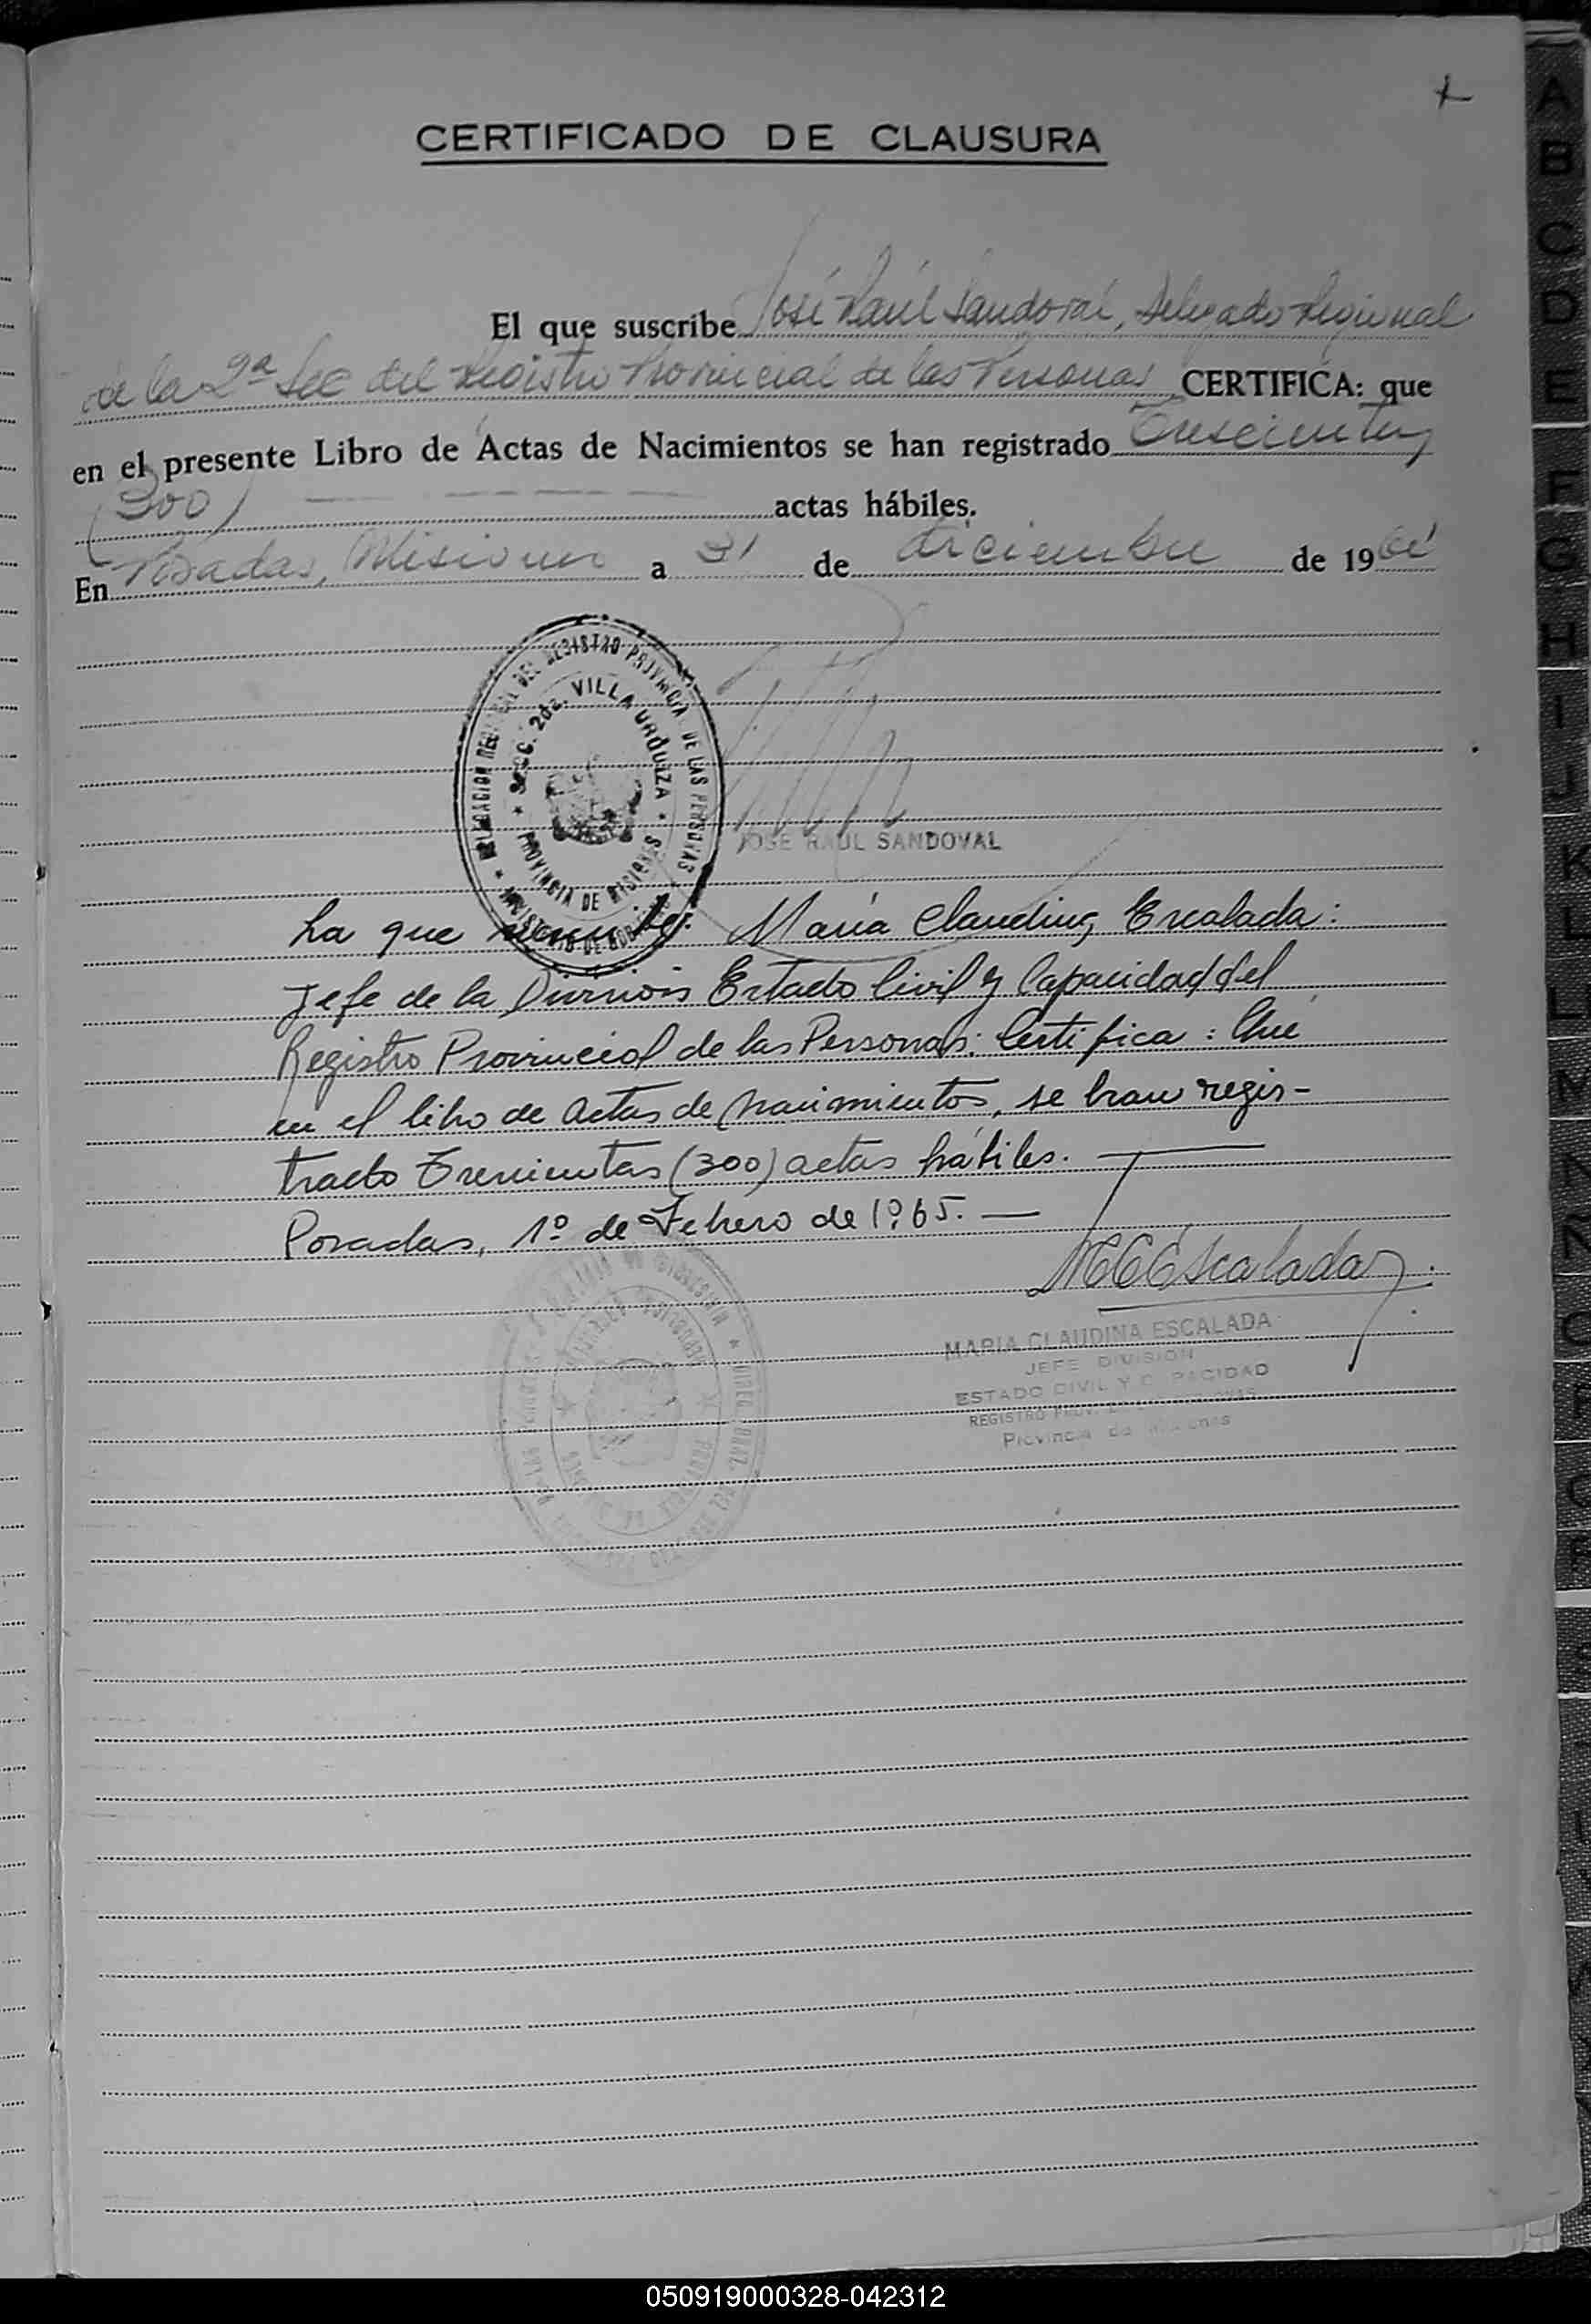 CERTIFICADO DE CLAUSURA
El que suscribe José Raúl Sandoval, Delegado Regional
de la 2ª Sec del Registro Provincial de las Personas CERTIFICA: que
en el presente Libro de Actas de Nacimientos se han registrado Trescientas
(300) actas hábiles.
En Posadas, Misiones a 31 de diciembre de 19
DELEGACION REGIONAL DEL REGISTRO PROVINCIAL DE LAS PERSONAS
SECC. 2da. VILLA URQUIZA
PROVINCIA DE MISIONES
JOSE RAUL SANDOVAL
La que suscribe: María Claudina Escalada:
Jefe de la División Estado Civil y Capacidad del
Registro Provincial de las Personas: Certifica: Que
en el libro de actas de nacimientos, se han regis-
trado Trescientas (300) actas hábiles.
Posadas, 1º de Febrero de 1965.
MCEscalada
MARIA CLAUDINA ESCALADA
JEFE DIVISION
ESTADO CIVIL Y CAPACIDAD
REGISTRO PROV. DE LAS PERSONAS
Provincia de Misiones
A
B
C
D
E
F
G
H
I
J
K
L
LL
M
N
Ñ
O
P
Q
R
S
050919000328-042312